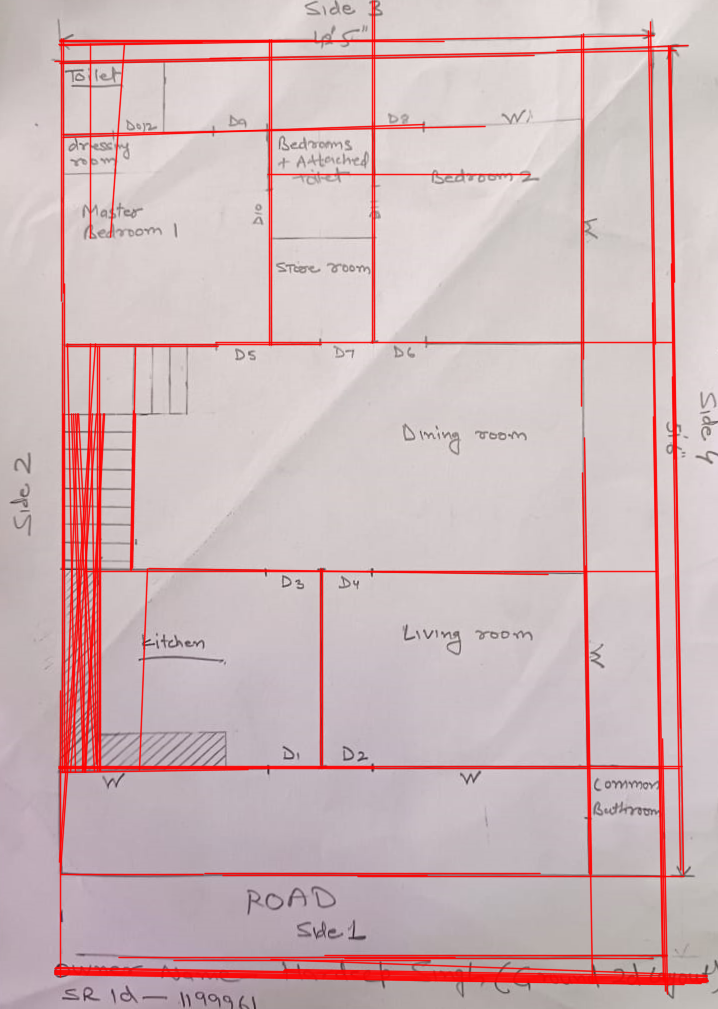 Side 3
Toilet
D012
D9
D8
W
dressing
room
Bedrooms
+ Attached
toilet
Bedroom 2
Master
Bedroom 1
D10
W
Store room
D5
D7
D6
Dining room
Side 2
Side 4
51'6"
D3
D4
Kitchen
Living room
W
D1
D2
W
W
Common
Bathroom
ROAD
Side 1
Owner Name
SR Id - 1199961